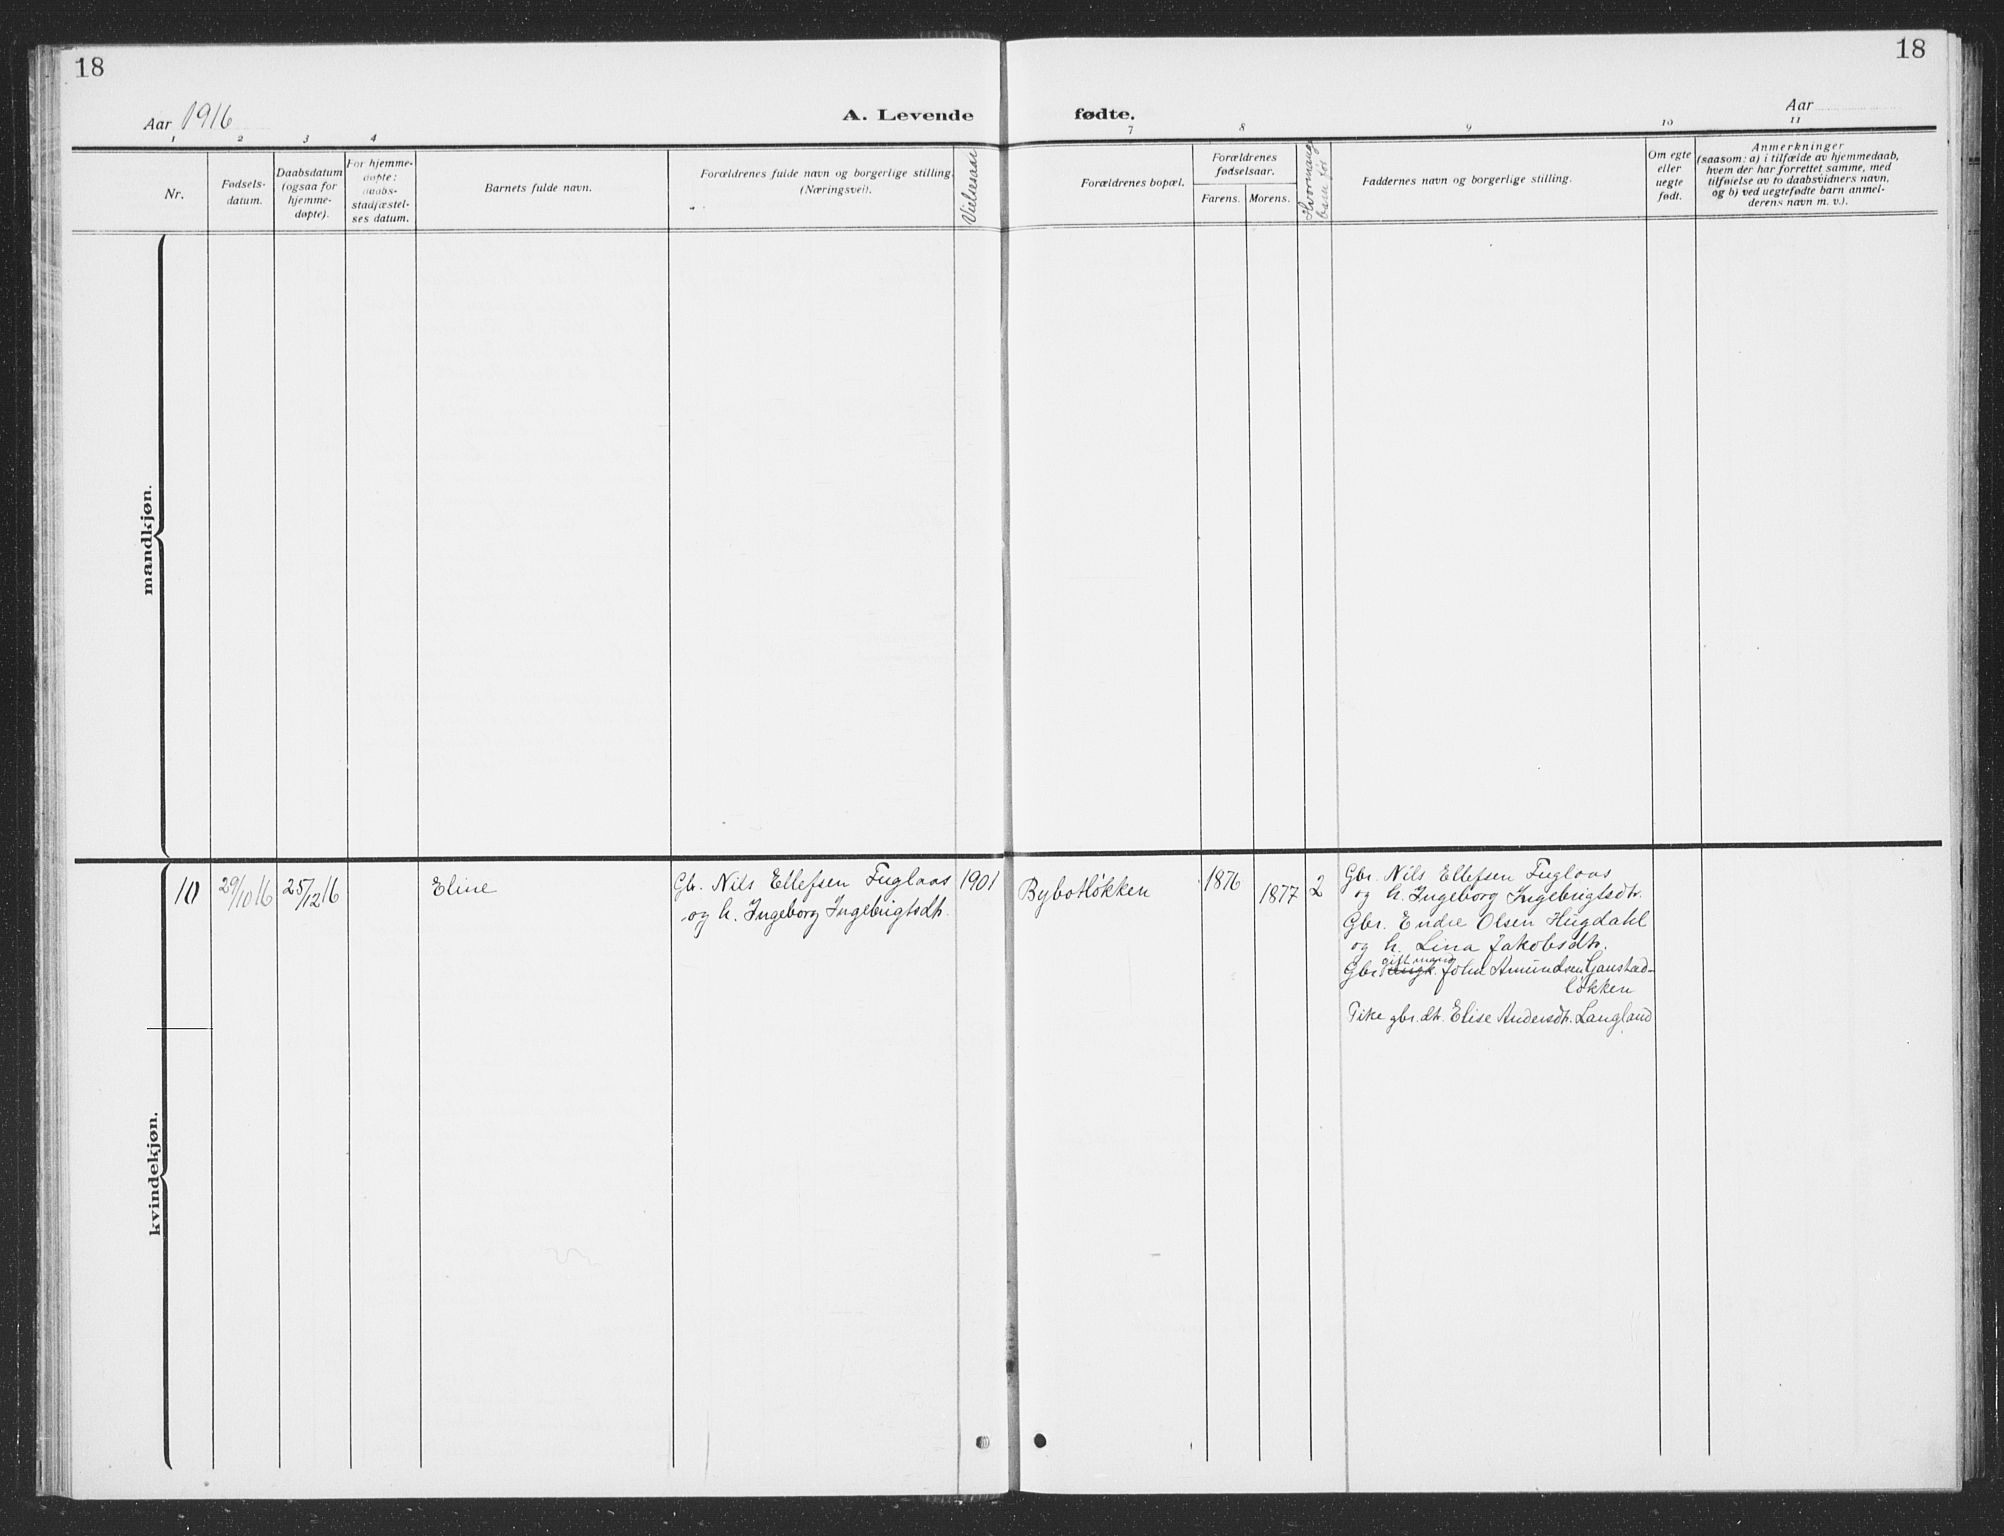 18
18
Aar 1916
A. Levende
fødte.
Aar
1
2
3
4
7
8
9
10
11
Nr.
Fødsels-
datum.
Daabsdatum
(ogsaa for
hjemme-
døpte).
For hjemme-
døpte:
daabs-
stadfæstel-
ses datum.
Barnets fulde navn.
Forældrenes fulde navn og borgerlige stilling.
(Næringsvei).
Vielsesaar
Forældrenes bopæl.
Forældrenes
fødselsaar.
Farens.
Morens.
Hvormange
barn før
Faddernes navn og borgerlige stilling.
Om egte
eller
uegte
født.
Anmerkninger
(saasom: a) i tilfælde av hjemmedaab,
hvem der har forrettet samme, med
tilføielse av to daabsvidners navn,
og b) ved uegtefødte barn anmel-
derens navn m. v.).
mandkjøn.
kvindekjøn.
10
29/10 16
25/12 16
Eline
Gb. Nils Ellefsen Fuglaas
og h. Ingeborg Ingebrigtsdtr.
1901
Bybotløkken
1876
1877
2
Gbr. Nils Ellefsen Fuglaas
og h. Ingeborg Ingebrigtsdtr.
Gbr. Endre Olsen Hugdahl
og h. Lina Jakobsdtr.
gift mand
Gbr. ungk. John Amundsen Ganstad-
løkken
Pike gbr.dtr. Elise Andersdtr. Langland